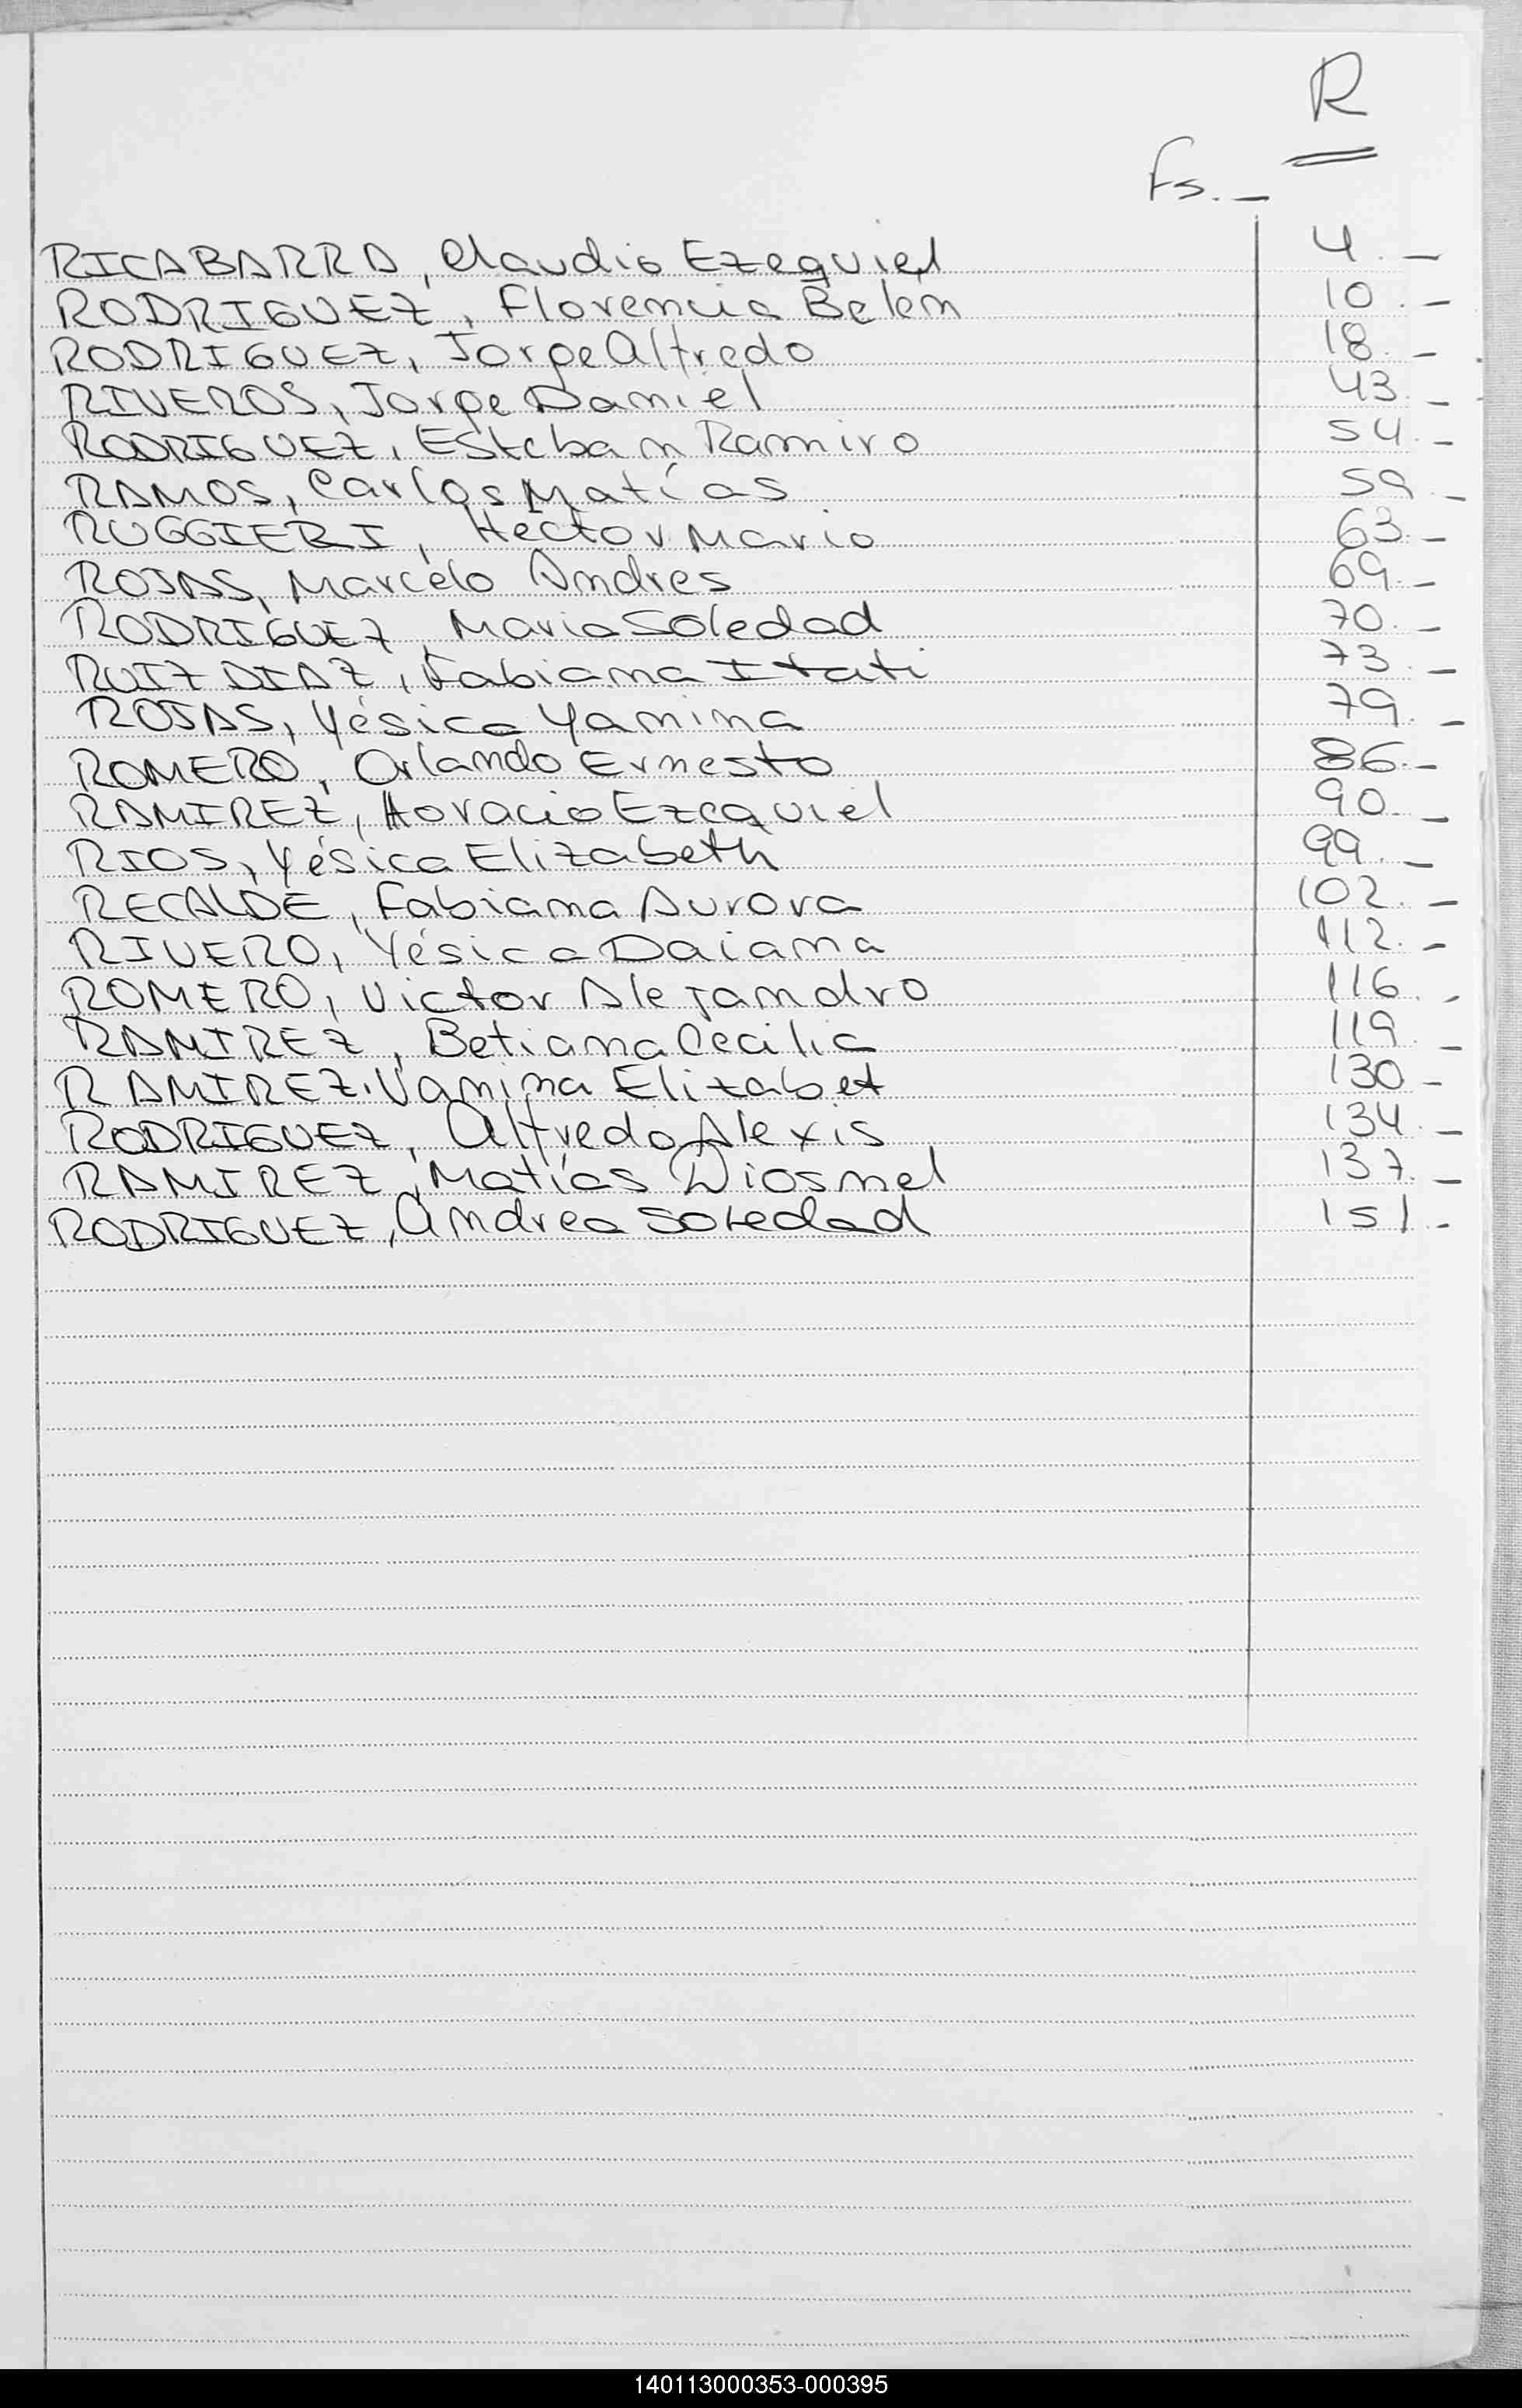 R
Fs. _
RICABARRA, Claudio Ezequiel 4. _
RODRIGUEZ, Florencia Belén 10. _
RODRIGUEZ, Jorge Alfredo 18. _
RIVEROS, Jorge Daniel 43. _
RODRIGUEZ, Esteban Ramiro 54. _
RAMOS, Carlos Matías 59. _
RUGGIERI, Hector Mario 63. _
ROJAS, Marcelo Andres 69. _
RODRIGUEZ, Maria Soledad 70. _
RUIZ DIAZ, Fabiana Itati 73. _
ROJAS, Yésica Yanina 79. _
ROMERO, Orlando Ernesto 86. _
RAMIREZ, Horacio Ezequiel 90. _
RIOS, Yésica Elizabeth 99. _
RECALDE, Fabiana Aurora 102. _
RIVERO, Yésica Daiana 112. _
ROMERO, Victor Alejandro 116. _
RAMIREZ, Betiana Cecilia 119. _
RAMIREZ, Vanina Elizabet 130 _
RODRIGUEZ, Alfredo Alexis 134. _
RAMIREZ, Matías Diosnel 137. _
RODRIGUEZ, Andrea Soledad 151. _
140113000353-000395